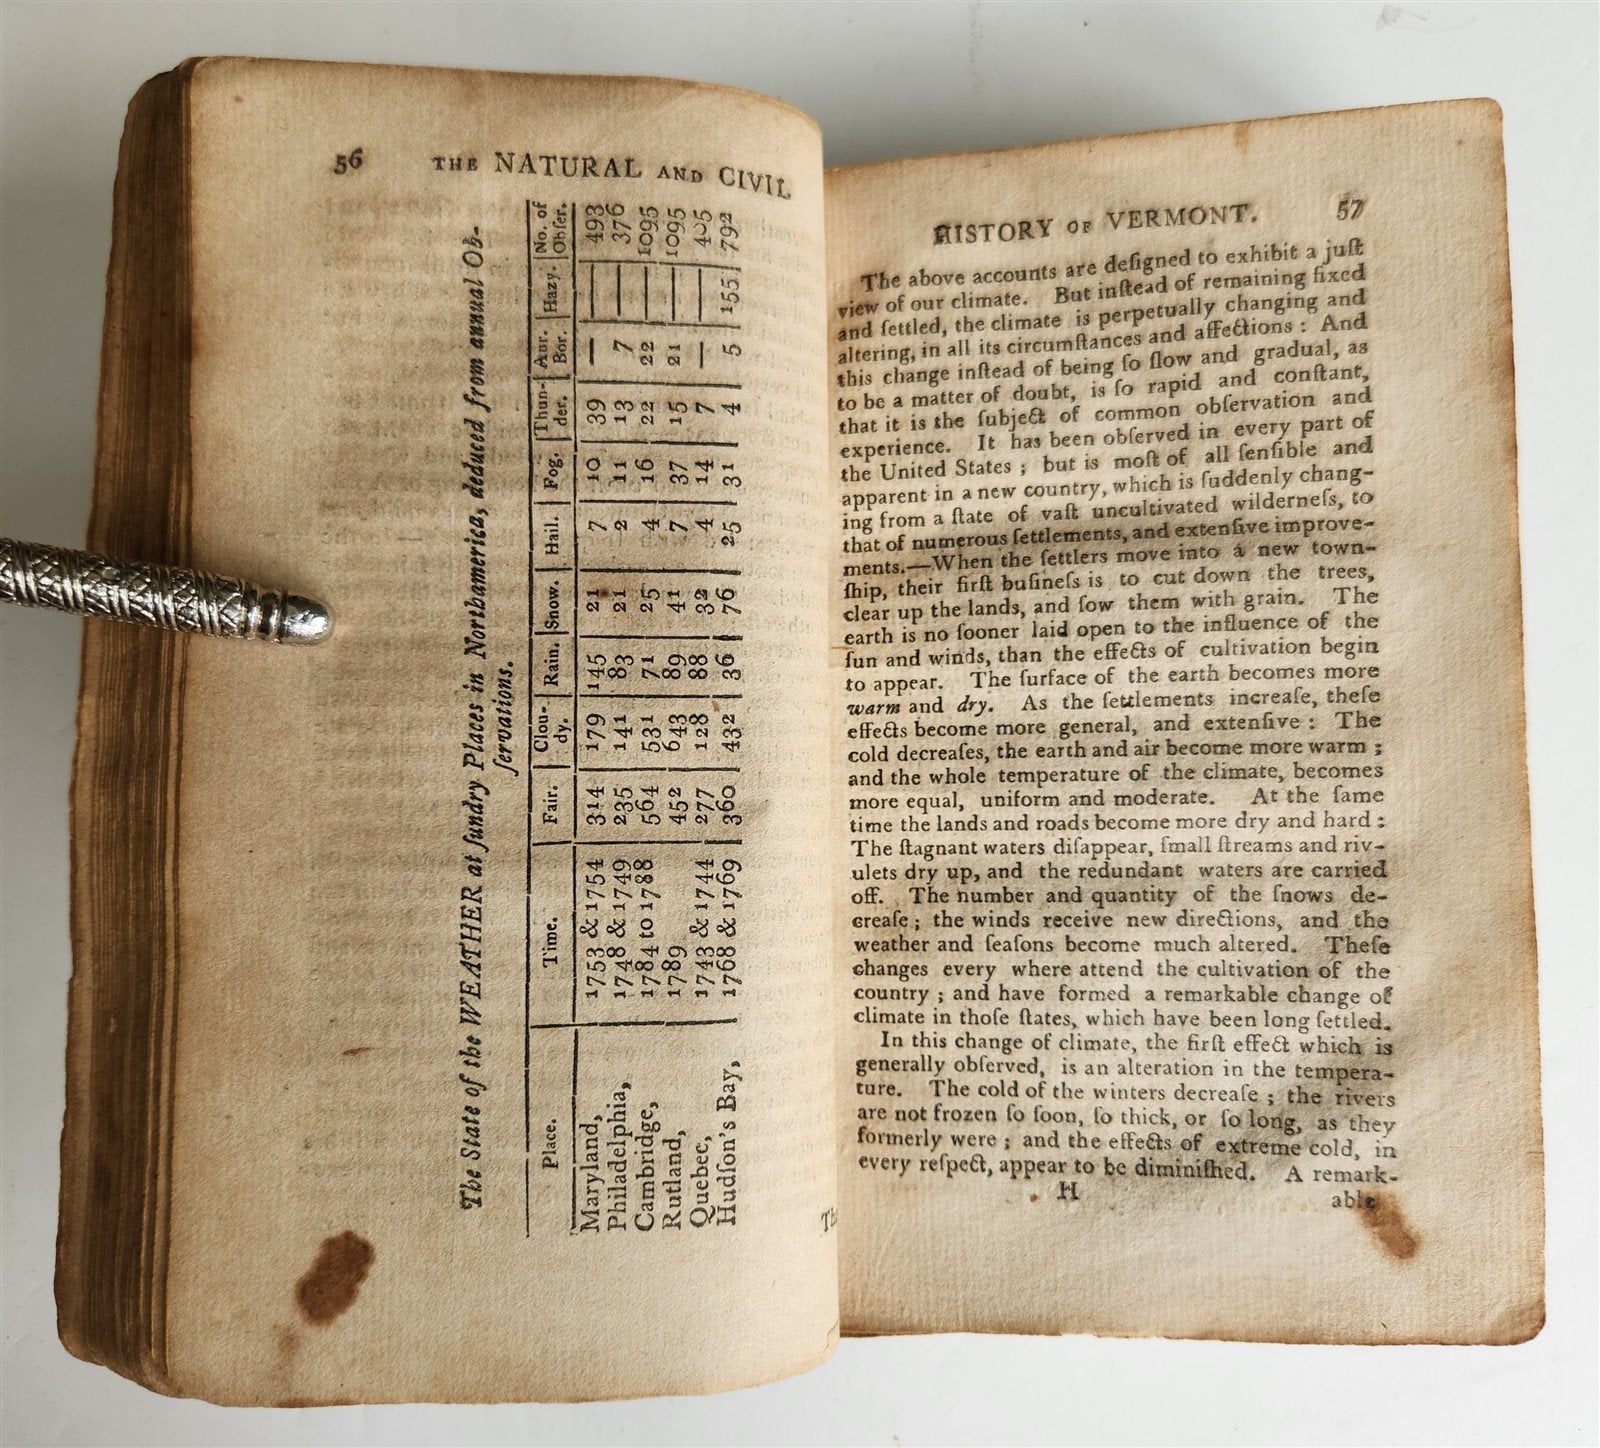 56 THE NATURAL AND CIVIL
The State of the WEATHER at ſundry Places in Northamerica, deduced from annual Ob-
ſervations.
Place. | Time. | Fair. | Clou-dy. | Rain. | Snow. | Hail. | Fog. | Thun-der. | Aur. Bor. | Hazy. | No. of Obſer.
Maryland, | 1753 & 1754 | 314 | 179 | 145 | 21 | 7 | 10 | 39 | — | — | 493
Philadelphia, | 1748 & 1749 | 235 | 141 | 83 | 21 | 2 | 11 | 13 | 7 | — | 376
Cambridge, | 1784 to 1788 | 564 | 531 | 71 | 25 | 4 | 16 | 22 | 22 | — | 1095
Rutland, | 1789 | 452 | 643 | 89 | 41 | 7 | 37 | 15 | 21 | — | 1095
Quebec, | 1743 & 1744 | 277 | 128 | 88 | 32 | 4 | 14 | 7 | — | — | 405
Hudſon's Bay, | 1768 & 1769 | 360 | 432 | 36 | 76 | 25 | 31 | 4 | 5 | 155 | 792
HISTORY OF VERMONT. 57
The above accounts are deſigned to exhibit a juſt
view of our climate. But inſtead of remaining fixed
and ſettled, the climate is perpetually changing and
altering, in all its circumſtances and affections : And
this change inſtead of being ſo ſlow and gradual, as
to be a matter of doubt, is ſo rapid and conſtant,
that it is the ſubject of common obſervation and
experience. It has been obſerved in every part of
the United States ; but is moſt of all ſenſible and
apparent in a new country, which is ſuddenly chang-
ing from a ſtate of vaſt uncultivated wilderneſs, to
that of numerous ſettlements, and extenſive improve-
ments.—When the ſettlers move into a new town-
ſhip, their firſt buſineſs is to cut down the trees,
clear up the lands, and ſow them with grain. The
earth is no ſooner laid open to the influence of the
ſun and winds, than the effects of cultivation begin
to appear. The ſurface of the earth becomes more
warm and dry. As the ſettlements increaſe, theſe
effects become more general, and extenſive : The
cold decreaſes, the earth and air become more warm ;
and the whole temperature of the climate, becomes
more equal, uniform and moderate. At the ſame
time the lands and roads become more dry and hard :
The ſtagnant waters diſappear, ſmall ſtreams and riv-
ulets dry up, and the redundant waters are carried
off. The number and quantity of the ſnows de-
creaſe ; the winds receive new directions, and the
weather and ſeaſons become much altered. Theſe
changes every where attend the cultivation of the
country ; and have formed a remarkable change of
climate in thoſe ſtates, which have been long ſettled.
In this change of climate, the firſt effect which is
generally obſerved, is an alteration in the tempera-
ture. The cold of the winters decreaſe ; the rivers
are not frozen ſo ſoon, ſo thick, or ſo long, as they
formerly were ; and the effects of extreme cold, in
every reſpect, appear to be diminiſhed. A remark-
H
able